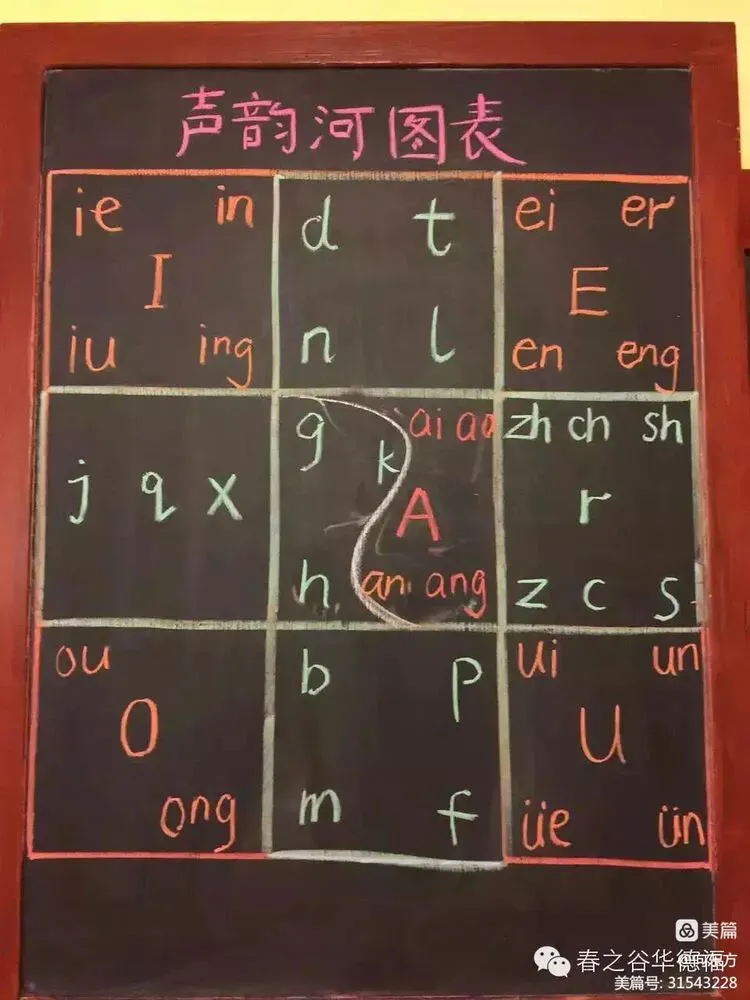 声韵河图表
ie in
I
iu ing
d t
n l
ei er
E
en eng
j q x
g
k
h
ai ao
A
an ang
zh ch sh
r
z c s
ou
O
ong
b p
m f
ui un
U
üe ün
美篇
春之谷华德福
美篇号: 31543228